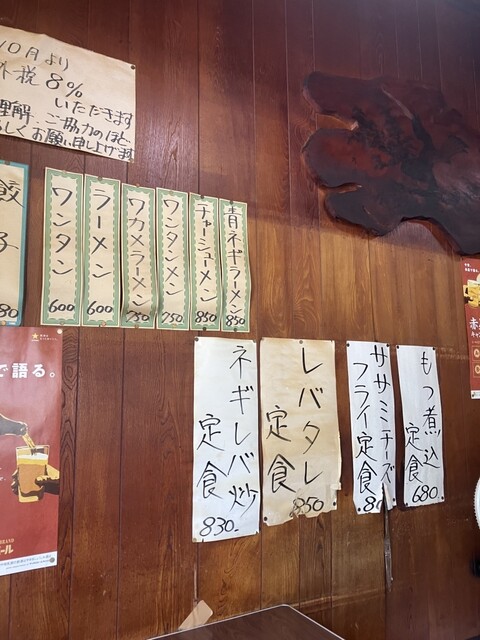 10月より
外税8%
いただきます
理解 ご協力のほど
しくお願い申し上げます
餃子
80
ワンタン
600
ラーメン
600
ワカメラーメン
750
ワンタンメン
750
チャーシューメン
850
青ネギラーメン
850
で語る。
ール
赤
ネギレバ炒
定食
830-
レバタレ
定食
850
ササミチーズ
フライ定食
もつ煮込
定食
680.